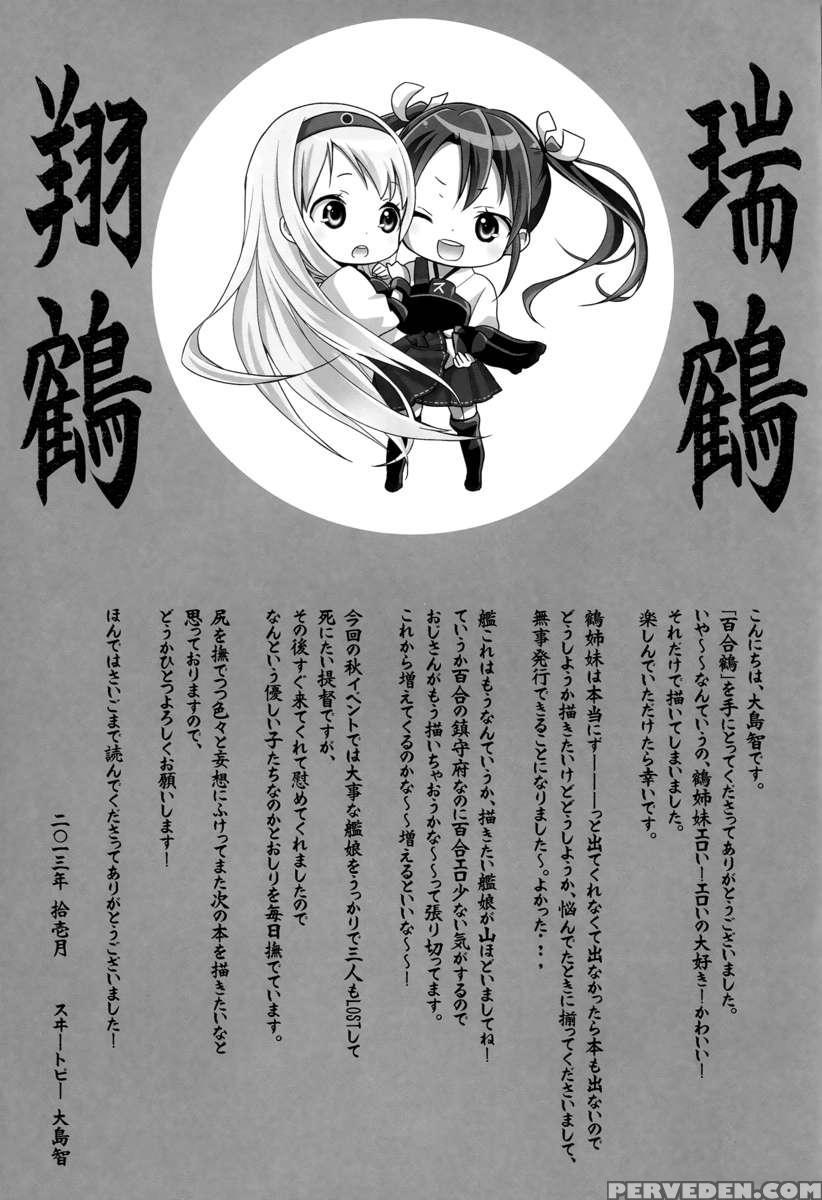 瑞鶴
翔鶴
こんにちは、大島智です。
「百合鶴」を手にとってくださってありがとうございました。
いや～～なんていうの、鶴姉妹エロい！エロいの大好き！かわいい！
それだけで描いてしまいました。
楽しんでいただけたら幸いです。
鶴姉妹は本当にずーーーっと出てくれなくて出なかったら本も出ないので
どうしようか描きたいけどどうしようか、悩んでたときに揃ってくださいまして、
無事発行できることになりました～。よかった・・・
艦これはもうなんていうか、描きたい艦娘が山ほどいましてね！
ていうか百合の鎮守府なのに百合エロ少ない気がするので
おじさんがもう描いちゃおうかな～～って張り切ってます。
これから増えてくるのかな～～増えるといいな～～！
今回の秋イベントでは大事な艦娘をうっかりで三人もLOSTして
死にたい提督ですが、
その後すぐ来てくれて慰めてくれましたので
なんという優しい子たちなのかとおしりを毎日撫でています。
尻を撫でつつ色々と妄想にふけってまた次の本を描きたいなと
思っておりますので、
どうかひとつよろしくお願いします！
ほんではさいごまで読んでくださってありがとうございました！
二〇一三年 拾壱月 スヰートピー 大島智
ス
PERVEDEN.COM